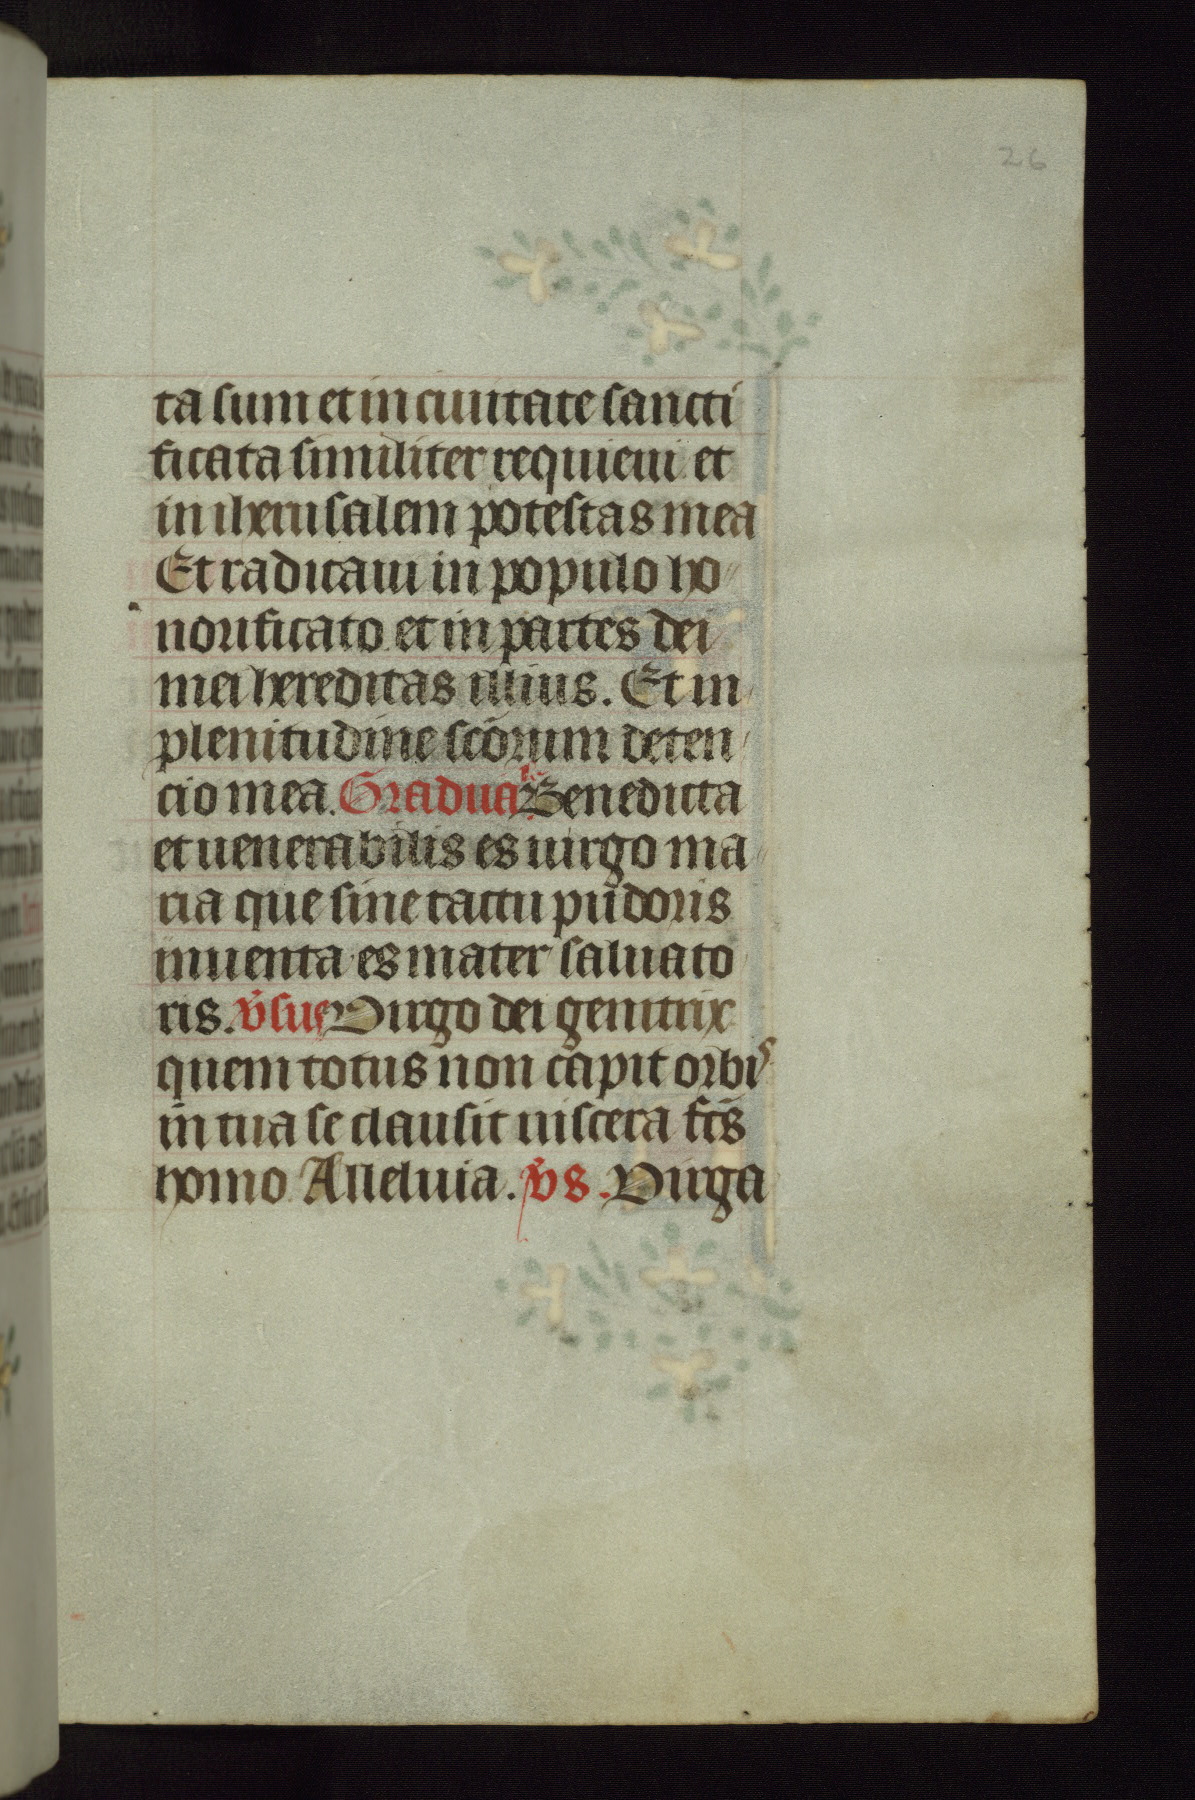 26
ta sum et in ciuitate sancti
ficata similiter requieui et
in iherusalem potestas mea
Et radicaui in populo ho
norificato et in partes dei
mei hereditas illius. Et in
plenitudine scõrum deten
cio mea. Gradua Benedicta
et uenerabilis es uirgo ma
ria que sine tactu pudoris
inuenta es mater saluato
ris. v̄sus Virgo dei genitrix
quem totus non capit orbis
in tua se clausit uiscera fc̄s
homo Alleluia. v̄s. Virga